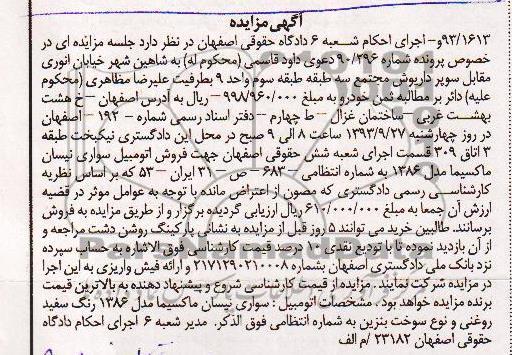 آگهی مزایده
۹۳/۱۶۱۳و- اجرای احکام شعبه ۶ دادگاه حقوقی اصفهان در نظر دارد جلسه مزایده ای در
خصوص پرونده شماره ۹۰/۲۹۶ دعوی داود قاسمی (محکوم له) به شاهین شهر خیابان انوری
مقابل سوپر داریوش مجتمع سه طبقه طبقه سوم واحد ۹ بطرفیت علیرضا مظاهری (محکوم
علیه) دائر بر مطالبه ثمن خودرو به مبلغ ۹۹۸/۹۶۰/۰۰۰ – ریال به آدرس اصفهان – خ هشت
بهشت غربی – ساختمان غزال – ط چهارم – دفتر اسناد رسمی شماره – ۱۹۲ – اصفهان
در روز چهارشنبه ۱۳۹۳/۹/۲۷ ساعت ۸ الی ۹ صبح در محل این دادگستری نیکبخت طبقه
۳ اتاق ۳۰۹ قسمت اجرای شعبه شش حقوقی اصفهان جهت فروش اتومبیل سواری نیسان
ماکسیما مدل ۱۳۸۶ به شماره انتظامی – ۶۸۳ – ص – ۳۱ ایران – ۵۳ که بر اساس نظریه
کارشناسی رسمی دادگستری که مصون از اعتراض مانده با توجه به عوامل موثر در قضیه
ارزش آن جمعا به مبلغ ۶۱۰/۰۰۰/۰۰۰ ریال ارزیابی گردیده برگزار و از طریق مزایده به فروش
برسانند. طالبین خرید می توانند ۵ روز قبل از مزایده به نشانی پارکینگ روشن دشت مراجعه و
از آن بازدید نموده تا با تودیع نقدی ۱۰ درصد قیمت کارشناسی فوق الاشاره به حساب سپرده
نزد بانک ملی دادگستری اصفهان بشماره ۲۱۷۱۲۹۰۲۱۰۰۰۸ و ارائه فیش واریزی به این اجرا
در مزایده شرکت نمایند. مزایده از قیمت کارشناسی شروع و پیشنهاد دهنده به بالاترین قیمت
برنده مزایده خواهد بود. مشخصات اتومبیل : سواری نیسان ماکسیما مدل ۱۳۸۶ رنگ سفید
روغنی و نوع سوخت بنزین به شماره انتظامی فوق الذکر. مدیر شعبه ۶ اجرای احکام دادگاه
حقوقی اصفهان ۲۳۱۸۲ /م الف